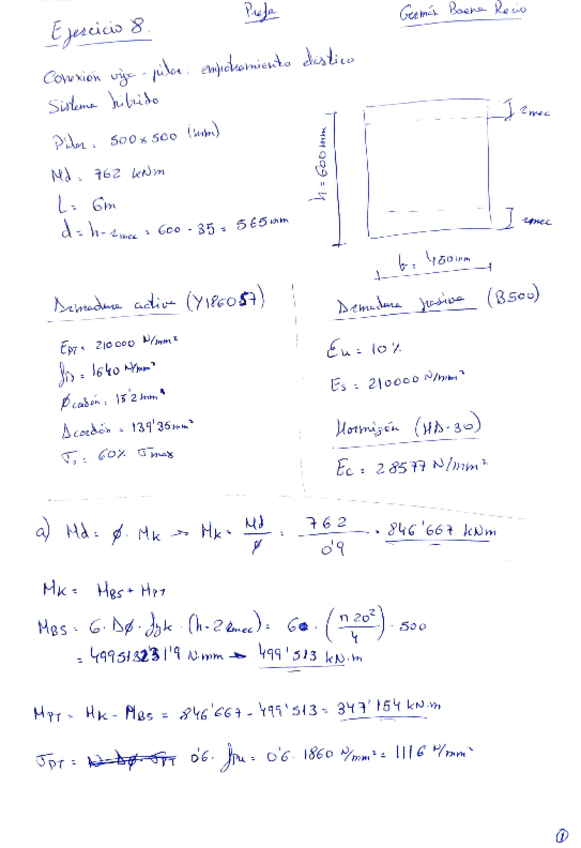 Prefa
Germán Baena Recio
Ejercicio 8.
Conexión viga-pilar: empotramiento elástico
Sistema híbrido
Pilar: 500 x 500 (mm)
Md: 762 kNm
L: 6m
d = h - rmec = 600 - 35 = 565 mm
rmec
h = 600 mm
rmec
b = 450 mm
Armadura activa (Y1860S7)
EPT = 210000 N/mm²
fp = 1640 N/mm²
Øcordón: 15'2 mm
Acordón = 139'35 mm²
σ = 60% σmax
Armadura pasiva (B500)
Eu = 10%
Es = 210000 N/mm²
Hormigón (HA-30)
Ec = 28577 N/mm²
a) Md = Ø · Mk → Mk = Md/Ø = 762/0'9 = 846'667 kNm
Mk = MBS + MPT
MBS = 6 · AØ · fyk · (h - 2rmec) = 6 · (π20²/4) · 500
= 499'513 kN·m
MPT = Mk - MBS = 846'667 - 499'513 = 347'154 kN·m
σPT = 0'6 · fpu = 0'6 · 1860 N/mm² = 1116 N/mm²
1